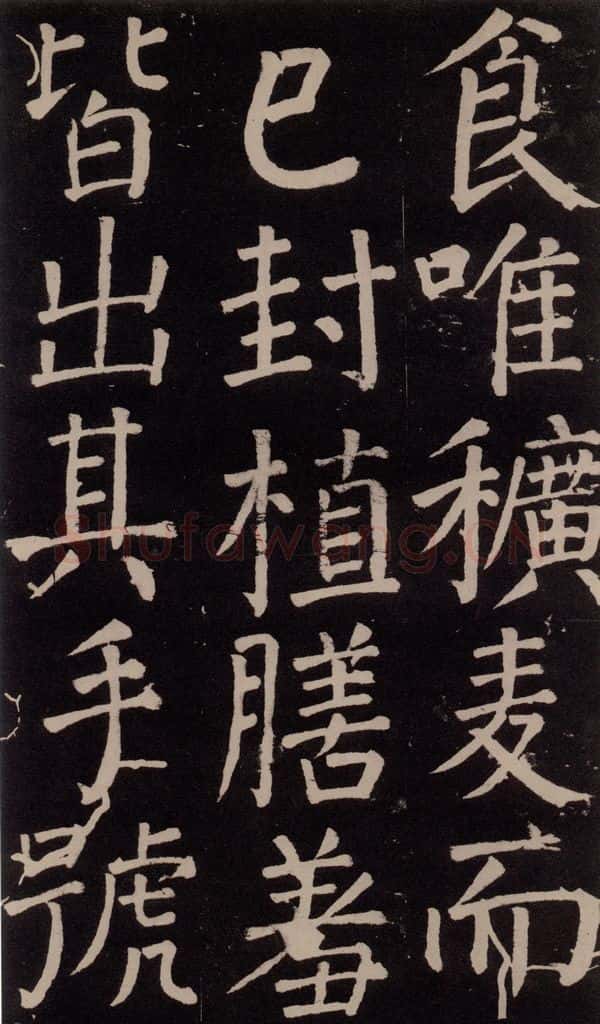 食唯穬麦而
已封植膳羞
皆出其手號
Shufawang.CN